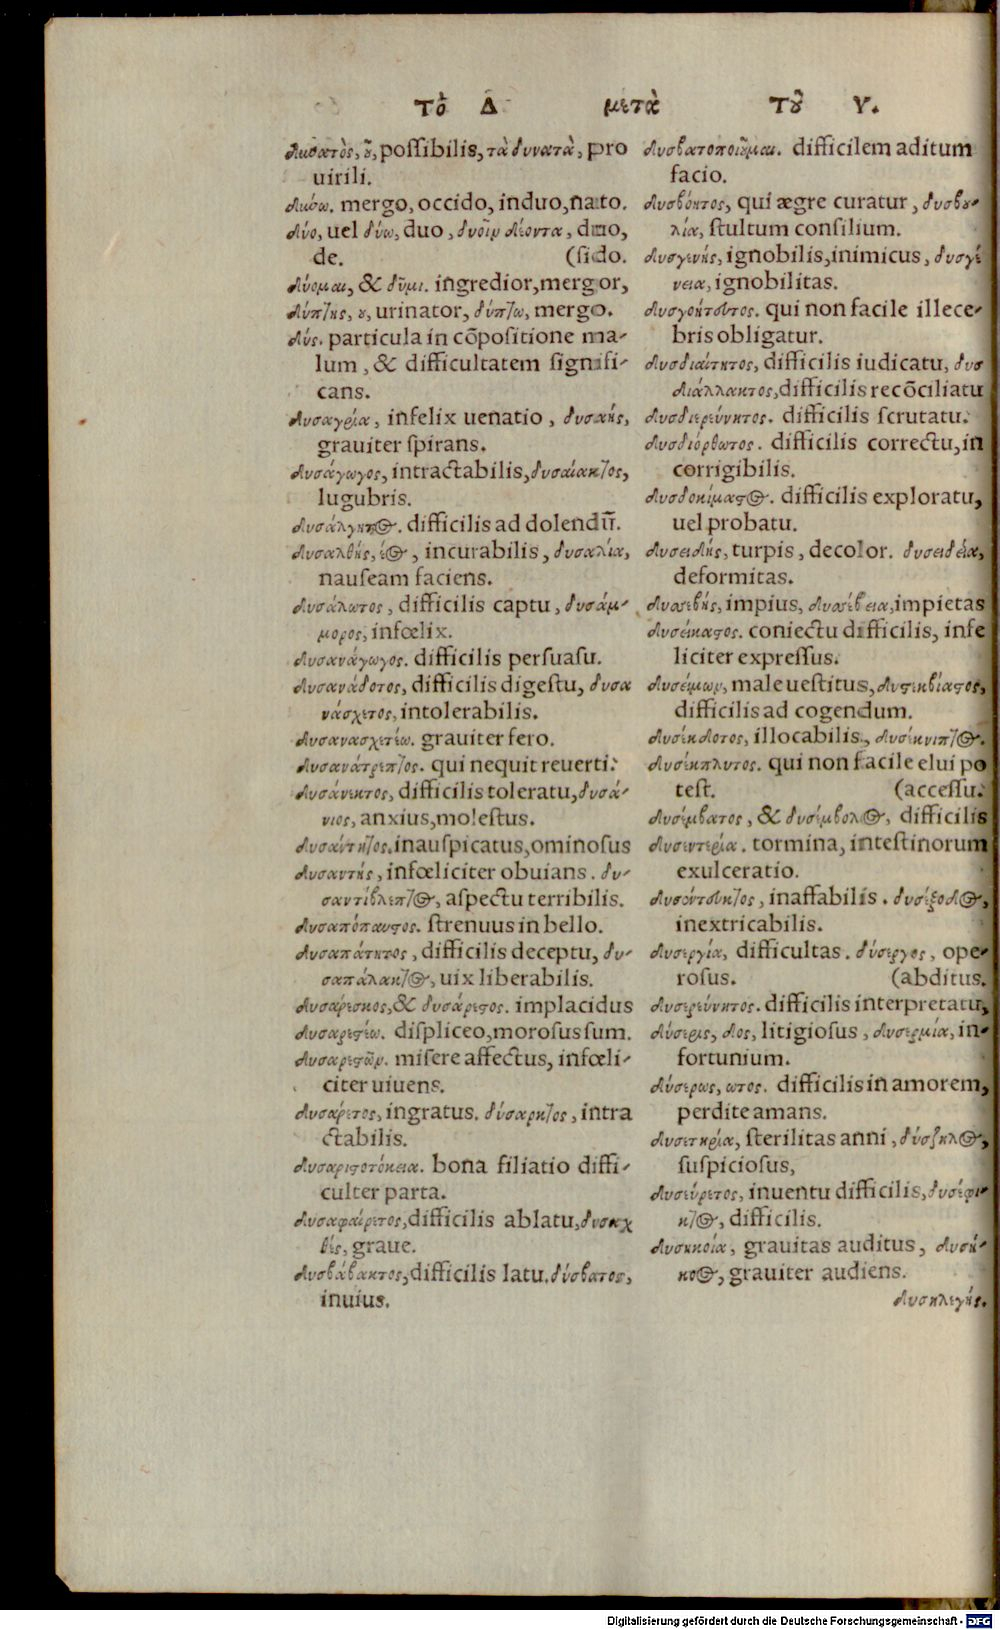 Τὸ Δ μετὰ τοῦ Υ.
Δυνατὸς, οῦ, possibilis, τὰ δυνατὰ, pro
uirili.
Δύνω. mergo, occido, induo, nato.
Δύο, uel δύω, duo, δυοῖν δέοντα, duo,
de. (sido.
Δύομαι, & δῦμι. ingredior, mergor,
Δύπτης, ου, urinator, δύπτω, mergo.
Δύς. particula in cõpositione ma-
lum, & difficultatem signifi-
cans.
Δυσαγρία, infelix uenatio, δυσαὴς,
grauiter spirans.
Δυσάγωγος, intractabilis, δυσαίακτος,
lugubris.
Δυσάλγητος. difficilis ad dolendũ.
Δυσαλθὴς, έος, incurabilis, δυσαλία,
nauseam faciens.
Δυσάλωτος, difficilis captu, δυσάμ-
μορος, infœlix.
Δυσανάγωγος. difficilis persuasu.
Δυσανάδοτος, difficilis digestu, δυσα
νάσχετος, intolerabilis.
Δυσανασχετέω. grauiter fero.
Δυσανάτρεπτος. qui nequit reuerti.
Δυσάνεκτος, difficilis toleratu, δυσά-
νιος, anxius, molestus.
Δυσάντητος. inauspicatus, ominosus
Δυσαντὴς, infœliciter obuians. δυ-
σαντίβλεπτος, aspectu terribilis.
Δυσαπόπαυστος. strenuus in bello.
Δυσαπάτητος, difficilis deceptu, δυ-
σαπάλακτος, uix liberabilis.
Δυσάρεσκος, & δυσάρεστος. implacidus
Δυσαρεστέω. displiceo, morosus sum.
Δυσαρεστῶν. misere affectus, infœli-
citer uiuens.
Δυσάρετος, ingratus. δύσαρκτος, intra
ctabilis.
Δυσαριστοτόκεια. bona filiatio diffi-
culter parta.
Δυσαφαίρετος, difficilis ablatu, δυσαχ
θὲς, graue.
Δυσβάβακτος, difficilis latu. δύσβατος,
inuius.
Δυσβατοποιοῦμαι. difficilem aditum
facio.
Δυσβόητος, qui ægre curatur, δυσβου-
λία, stultum consilium.
Δυσγενὴς, ignobilis, inimicus, δυσγέ
νεια, ignobilitas.
Δυσγοήτευτος. qui non facile illece-
bris obligatur.
Δυσδιαίτητος, difficilis iudicatu, δυσ
διάλλακτος, difficilis recõciliatu
Δυσδιερεύνητος. difficilis scrutatu.
Δυσδιόρθωτος. difficilis correctu, in
corrigibilis.
Δυσδοκίμαστος. difficilis exploratu,
uel probatu.
Δυσειδὴς, turpis, decolor. δυσειδεία,
deformitas.
Δυσεβὴς, impius, δυσέβεια, impietas
Δυσείκαστος. coniectu difficilis, infe
liciter expressus.
Δυσείμων, male uestitus, δυσεκβίαστος,
difficilis ad cogendum.
Δυσέκδοτος, illocabilis, δυσέκνιπτος.
Δυσέκπλυτος. qui non facile elui po
test. (accessu.
Δυσέμβατος, & δυσέμβολος, difficilis
Δυσεντερία. tormina, intestinorum
exulceratio.
Δυσέντευκτος, inaffabilis. δυσέξοδος,
inextricabilis.
Δυσεργία, difficultas. δύσεργος, ope-
rosus. (abditus.
Δυσερεύνητος. difficilis interpretatu,
Δύσερις, δος, litigiosus, δυσερμία, in-
fortunium.
Δύσερως, ωτος. difficilis in amorem,
perdite amans.
Δυσετηρία, sterilitas anni, δύσζηλος,
suspiciosus,
Δυσεύρετος, inuentu difficilis, δυσέφι-
κτος, difficilis.
Δυσηκοία, grauitas auditus, δυσή-
κοος, grauiter audiens.
Δυσηλεγής.
Digitalisierung gefördert durch die Deutsche Forschungsgemeinschaft - DFG